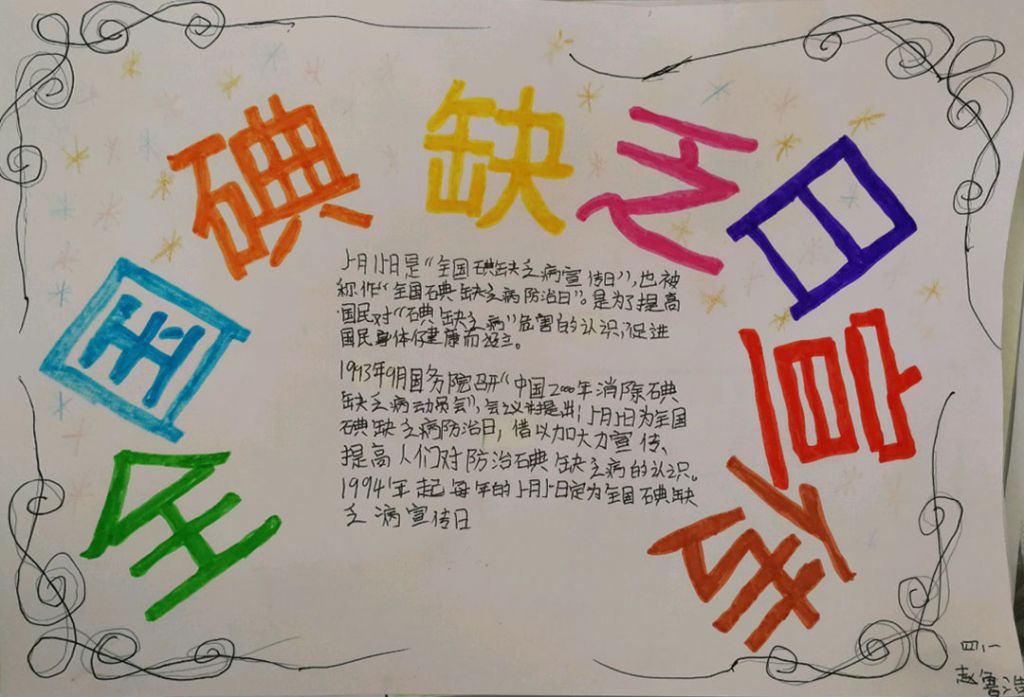 全国碘缺乏日宣传
5月15日是“全国碘缺乏病宣传日”,也被
称作“全国碘缺乏病防治日”。是为了提高
国民对“碘缺乏病”危害的认识,促进
国民身体健康而设立。
1993年9月国务院召开“中国2000年消除碘
缺乏病动员会”,会议并提出,5月5日为全国
碘缺乏病防治日,借以加大力宣传、
提高人们对防治碘缺乏病的认识。
1994年起每年的5月15日定为全国碘缺
乏病宣传日
四、一
赵雪